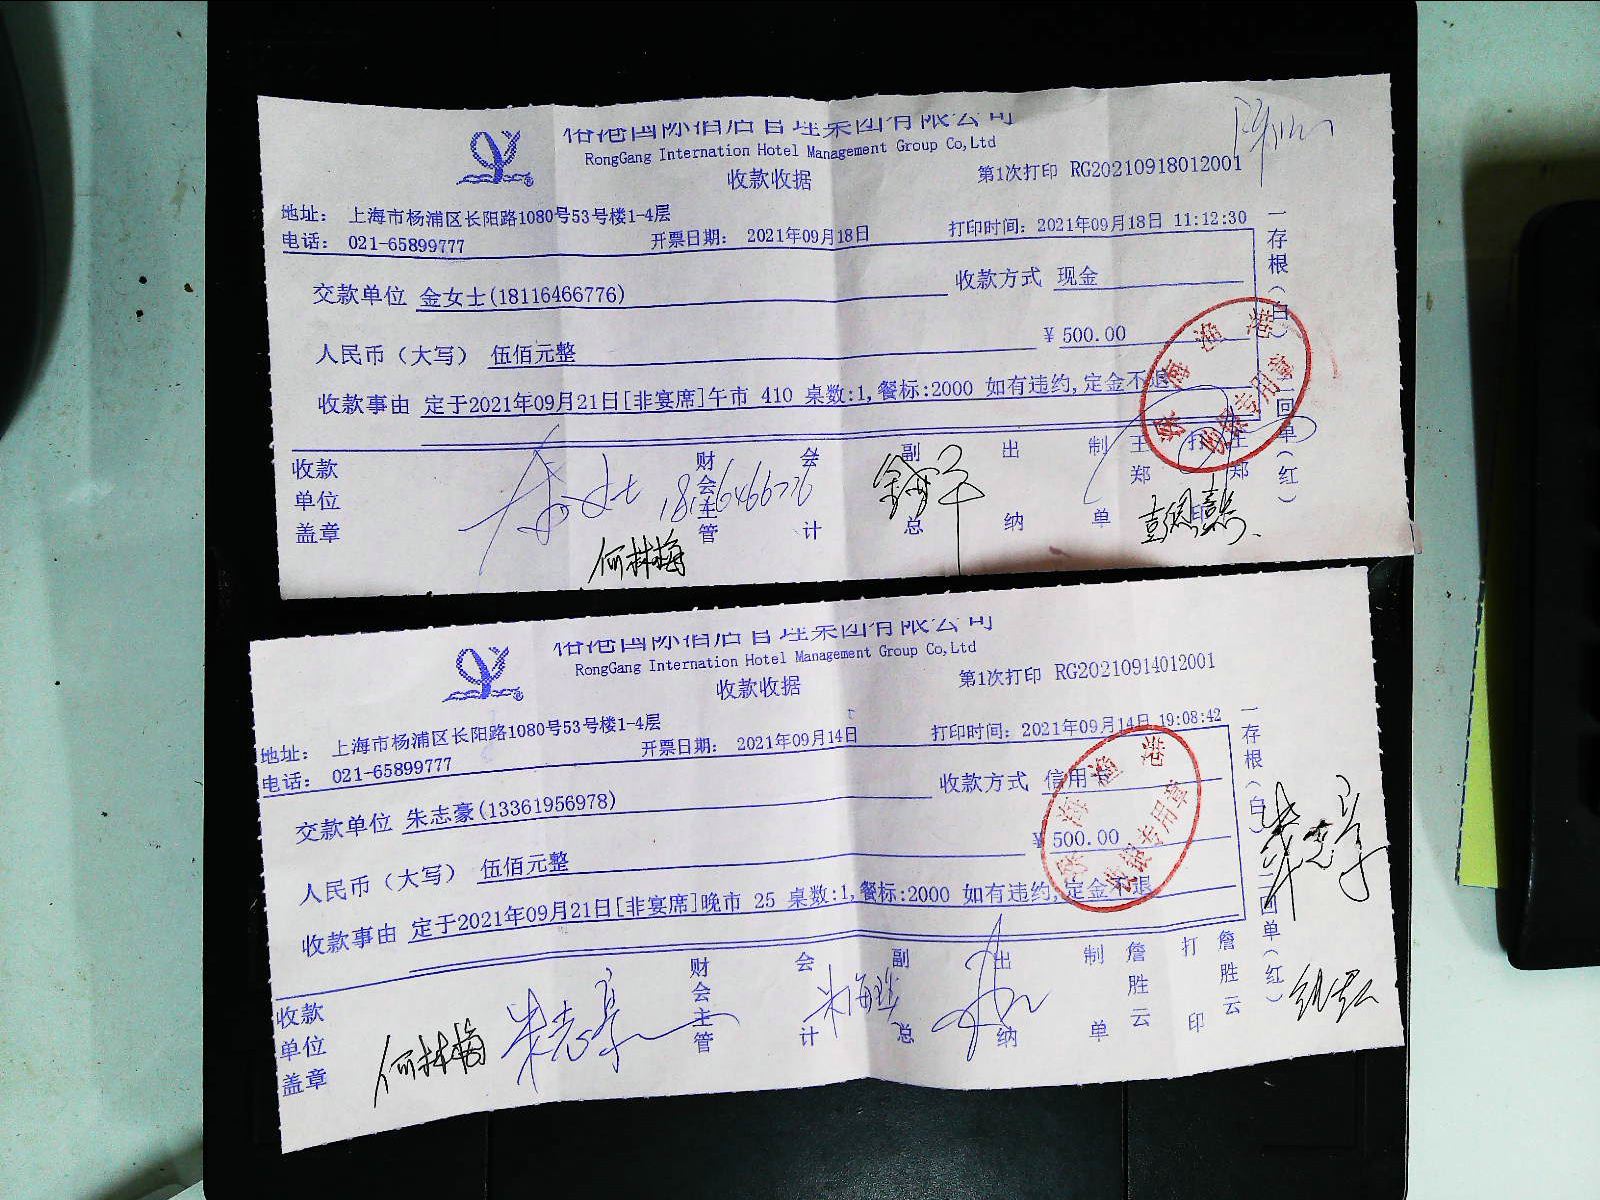 国际酒店管理集团有限公司
RongGang Internation Hotel Management Group Co,Ltd
收款收据
第1次打印 RG20210918012001
地址： 上海市杨浦区长阳路1080号53号楼1-4层
电话： 021-65899777
开票日期： 2021年09月18日
打印时间：2021年09月18日 11:12:30
交款单位 金女士(18116466776)
收款方式 现金
人民币（大写） 伍佰元整
¥ 500.00
收款事由 定于2021年09月21日[非宴席]午市 410 桌数:1,餐标:2000 如有违约,定金不退
一存根（白）二回单（红）
收款单位盖章
财会主管
会计
副总
出纳
制单
王郑
打印
王郑
18116466776
何林梅
国际酒店管理集团有限公司
RongGang Internation Hotel Management Group Co,Ltd
收款收据
第1次打印 RG20210914012001
地址： 上海市杨浦区长阳路1080号53号楼1-4层
电话： 021-65899777
开票日期： 2021年09月14日
打印时间：2021年09月14日 19:08:42
交款单位 朱志豪(13361956978)
收款方式 信用
人民币（大写） 伍佰元整
¥ 500.00
收款事由 定于2021年09月21日[非宴席]晚市 25 桌数:1,餐标:2000 如有违约,定金不退
一存根（白）二回单（红）
收款单位盖章
财会主管
会计
副总
出纳
制单
詹胜云
打印
詹胜云
何林梅
朱志豪
朱志豪